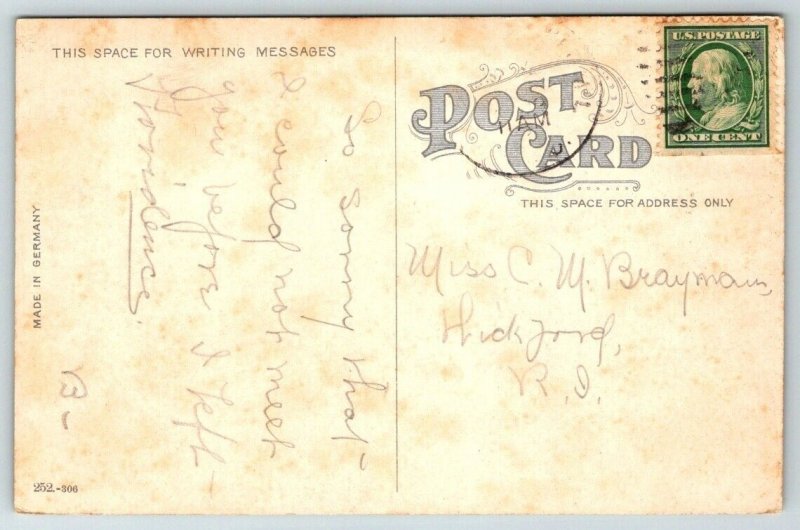 THIS SPACE FOR WRITING MESSAGES
So sorry that
I could not meet
you before I left
Providence.
B-
MADE IN GERMANY
252.-306
POST
CARD
THIS SPACE FOR ADDRESS ONLY
U.S. POSTAGE
ONE CENT
Miss C. M. Brayman,
Wickford,
R.I.